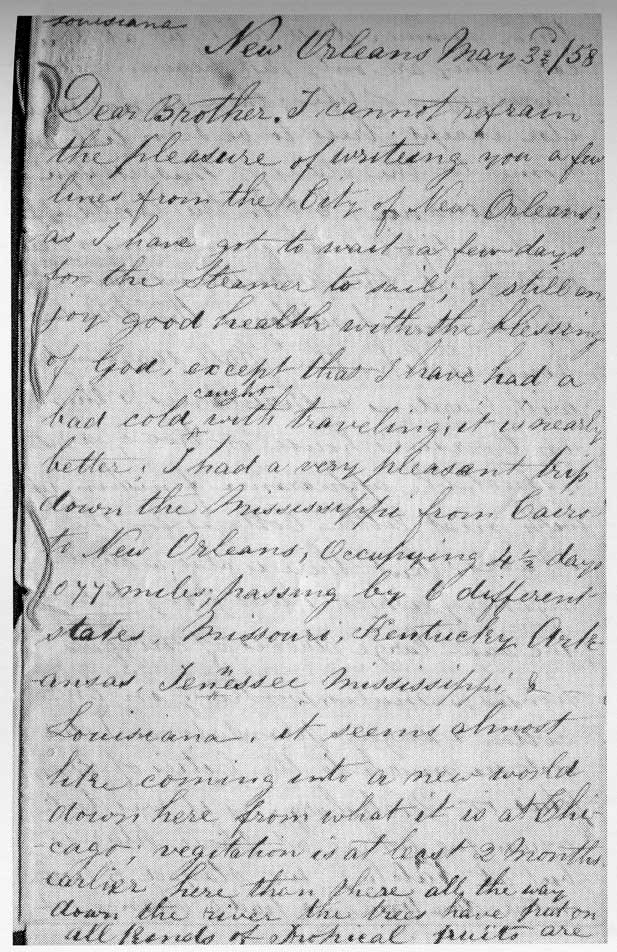 Louisiana
New Orleans May 3d/58
Dear Brother. I cannot refrain
the pleasure of writeing you a few
lines from the City of New Orleans;
as I have got to wait a few days
for the Steamer to sail; I still en
joy good health with the blessing
of God, except that I have had a
caught
bad cold with traveling, it is nearly
better. I had a very pleasant trip
down the Mississippi from Cairo
to New Orleans, Occupying 4½ days
077 miles, passing by 6 different
states, Missouri, Kentucky Ark-
ansas, Tennessee Mississippi &
Louisiana, it seems almost
like coming into a new world
down here from what it is at Chi-
cago; vegitation is at least 2 Months
earlier here than there all the way
down the river the trees have put on
all kinds of Tropical fruits are